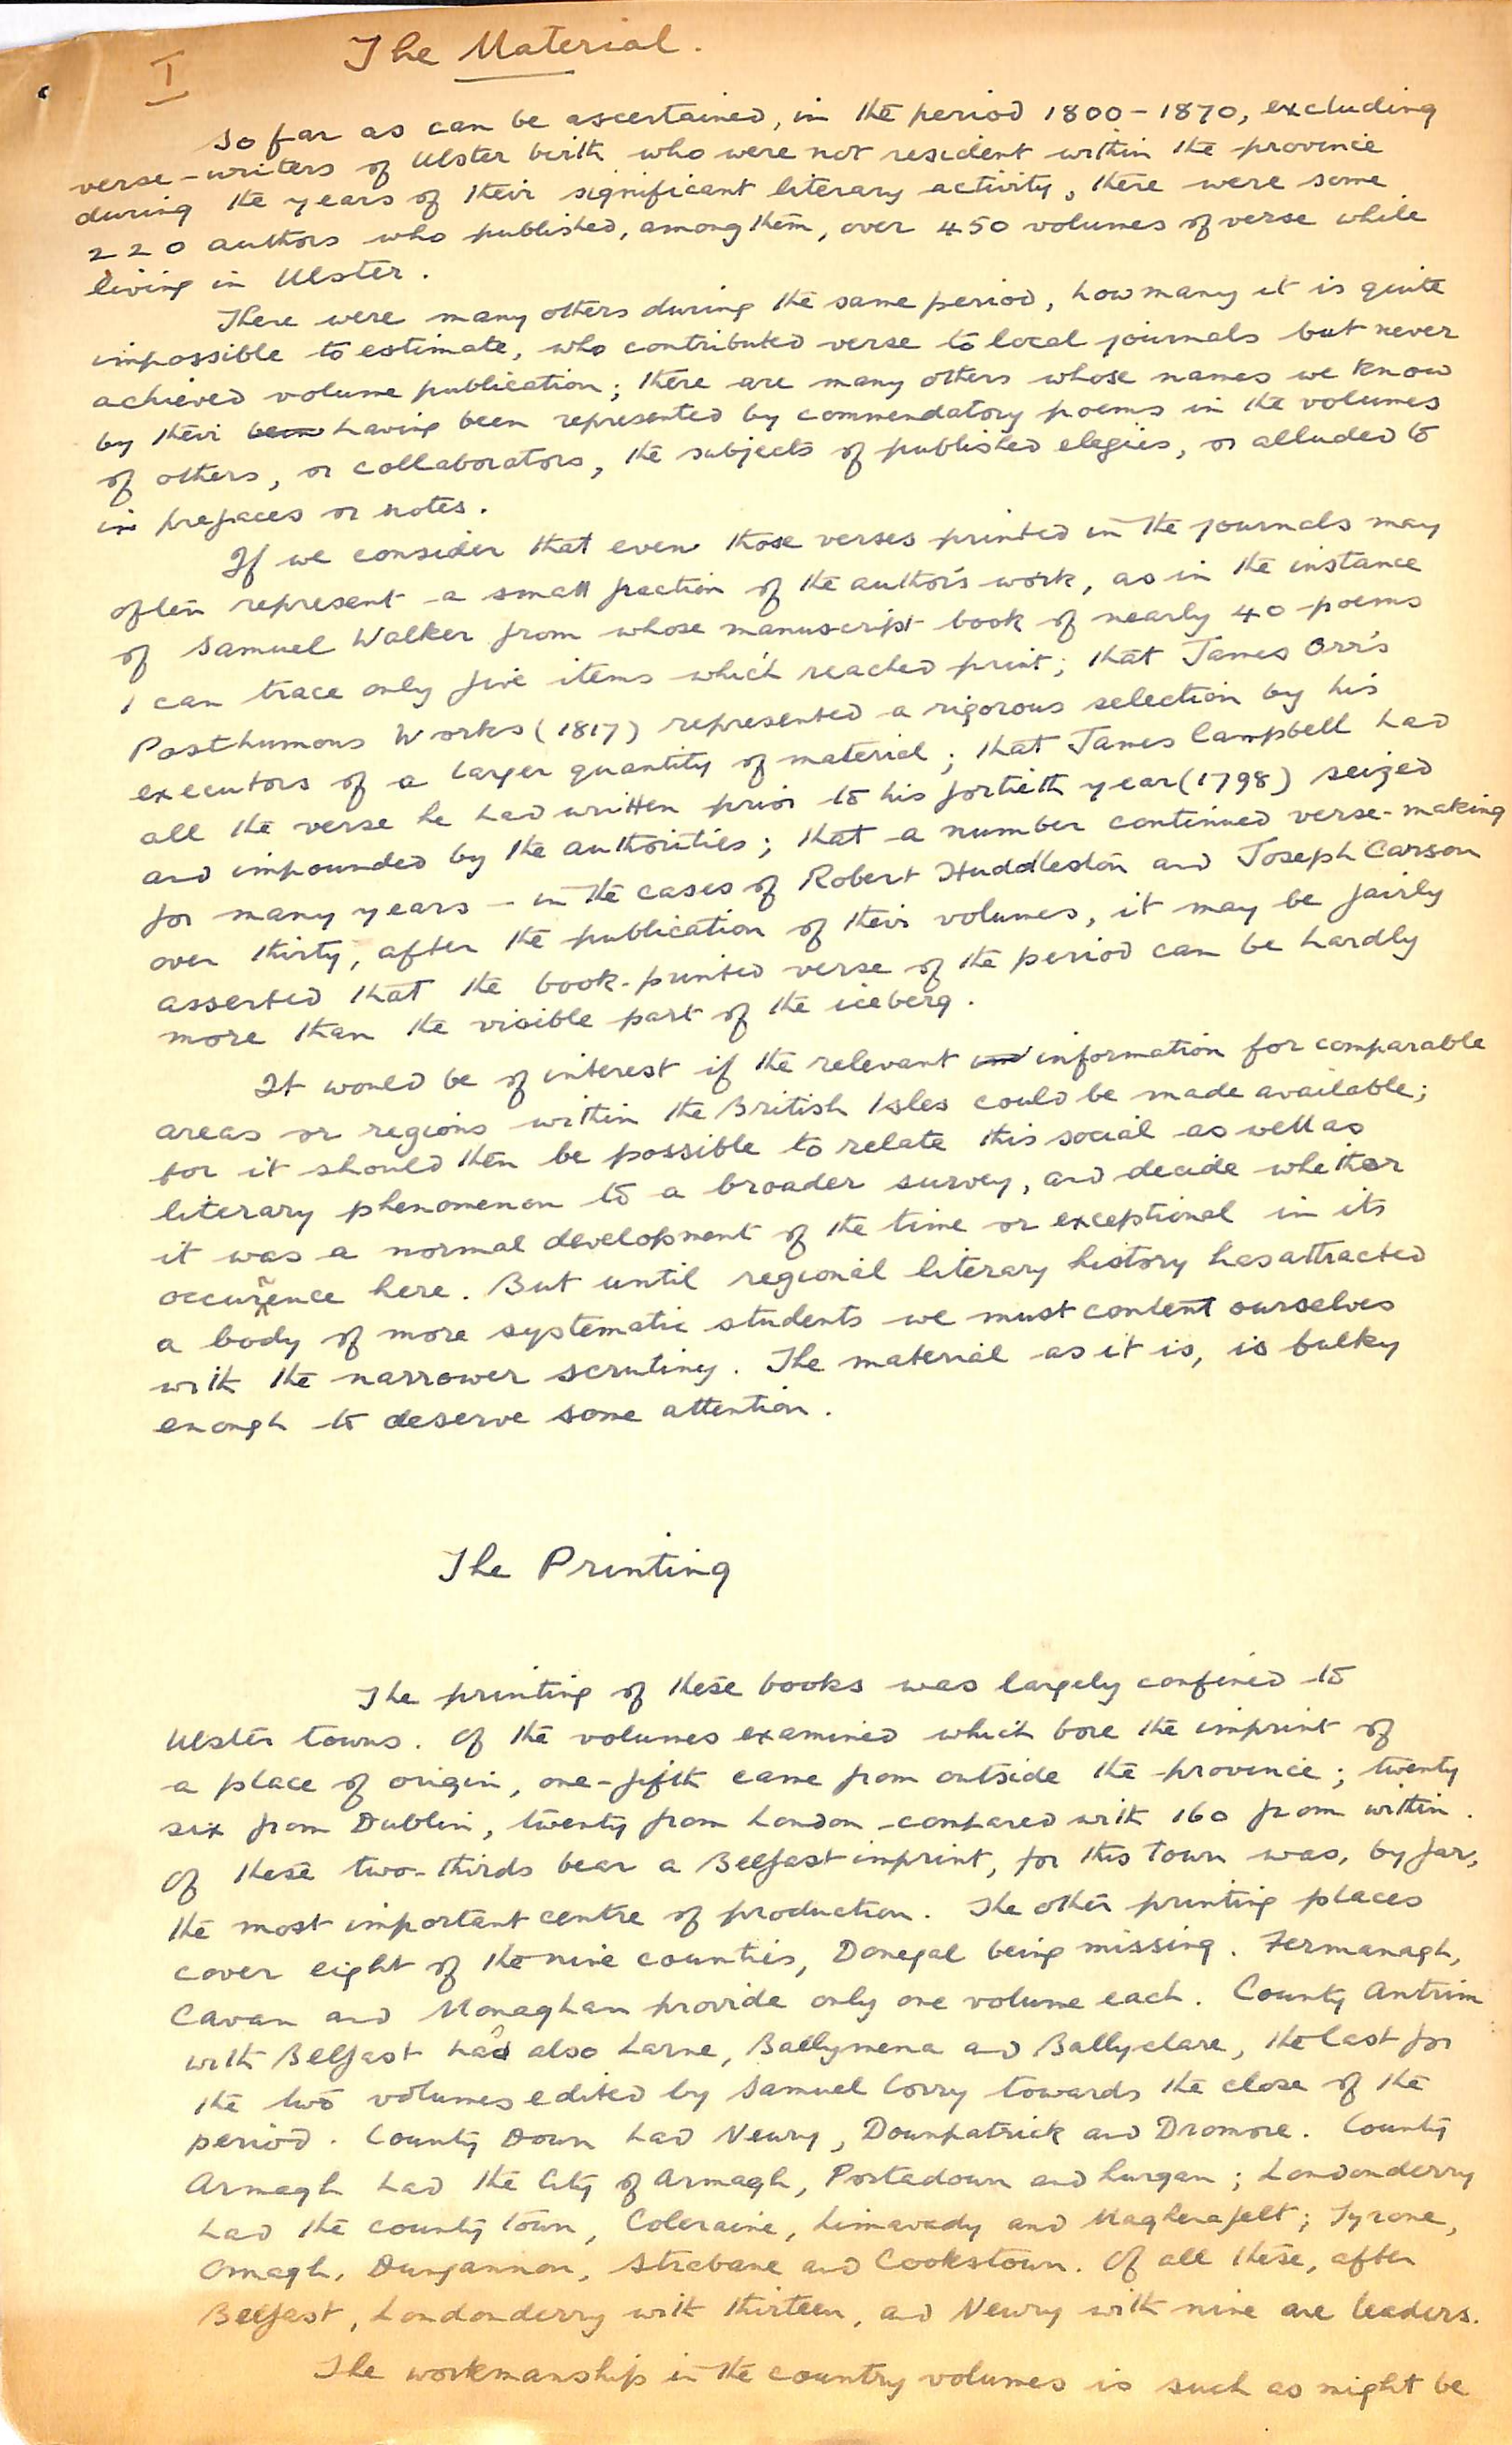 I
The Material.
So far as can be ascertained, in the period 1800-1870, excluding
verse-writers of Ulster birth who were not resident within the province
during the years of their significant literary activity, there were some
220 authors who published, among them, over 450 volumes of verse while
living in Ulster.
There were many others during the same period, how many it is quite
impossible to estimate, who contributed verse to local journals but never
achieved volume publication; there are many others whose names we know
by their been having been represented by commendatory poems in the volumes
of others, or collaborators, the subjects of published elegies, or alluded to
in prefaces or notes.
If we consider that even those verses printed in the journals may
often represent a small fraction of the author's work, as in the instance
of Samuel Walker from whose manuscript book of nearly 40 poems
I can trace only five items which reached print; that James Orr's
Posthumous Works (1817) represented a rigorous selection by his
executors of a larger quantity of material; that James Campbell had
all the verse he had written prior to his fortieth year (1798) seized
and impounded by the authorities; that a number continued verse-making
for many years - in the cases of Robert Huddleston and Joseph Carson
over thirty, after the publication of their volumes, it may be fairly
asserted that the book-printed verse of the period can be hardly
more than the visible part of the iceberg.
It would be of interest if the relevant information for comparable
areas or regions within the British Isles could be made available;
for it should then be possible to relate this social as well as
literary phenomenon to a broader survey, and decide whether
it was a normal development of the time or exceptional in its
occurrence here. But until regional literary history has attracted
a body of more systematic students we must content ourselves
with the narrower scrutiny. The material as it is, is bulky
enough to deserve some attention.
The Printing
The printing of these books was largely confined to
Ulster towns. Of the volumes examined which bore the imprint of
a place of origin, one-fifth came from outside the province; twenty
six from Dublin, twenty from London compared with 160 from within.
Of these two-thirds bear a Belfast imprint, for this town was, by far,
the most important centre of production. The other printing places
cover eight of the nine counties, Donegal being missing. Fermanagh,
Cavan and Monaghan provide only one volume each. County Antrim
with Belfast had also Larne, Ballymena and Ballyclare, the last for
the two volumes edited by Samuel Corry towards the close of the
period. County Down had Newry, Downpatrick and Dromore. County
Armagh had the City of Armagh, Portadown and Lurgan; Londonderry
had the county town, Coleraine, Limavady and Magherafelt; Tyrone,
Omagh, Dungannon, Strabane and Cookstown. Of all these, after
Belfast, Londonderry with thirteen, and Newry with nine are leaders.
The workmanship in the country volumes is such as might be